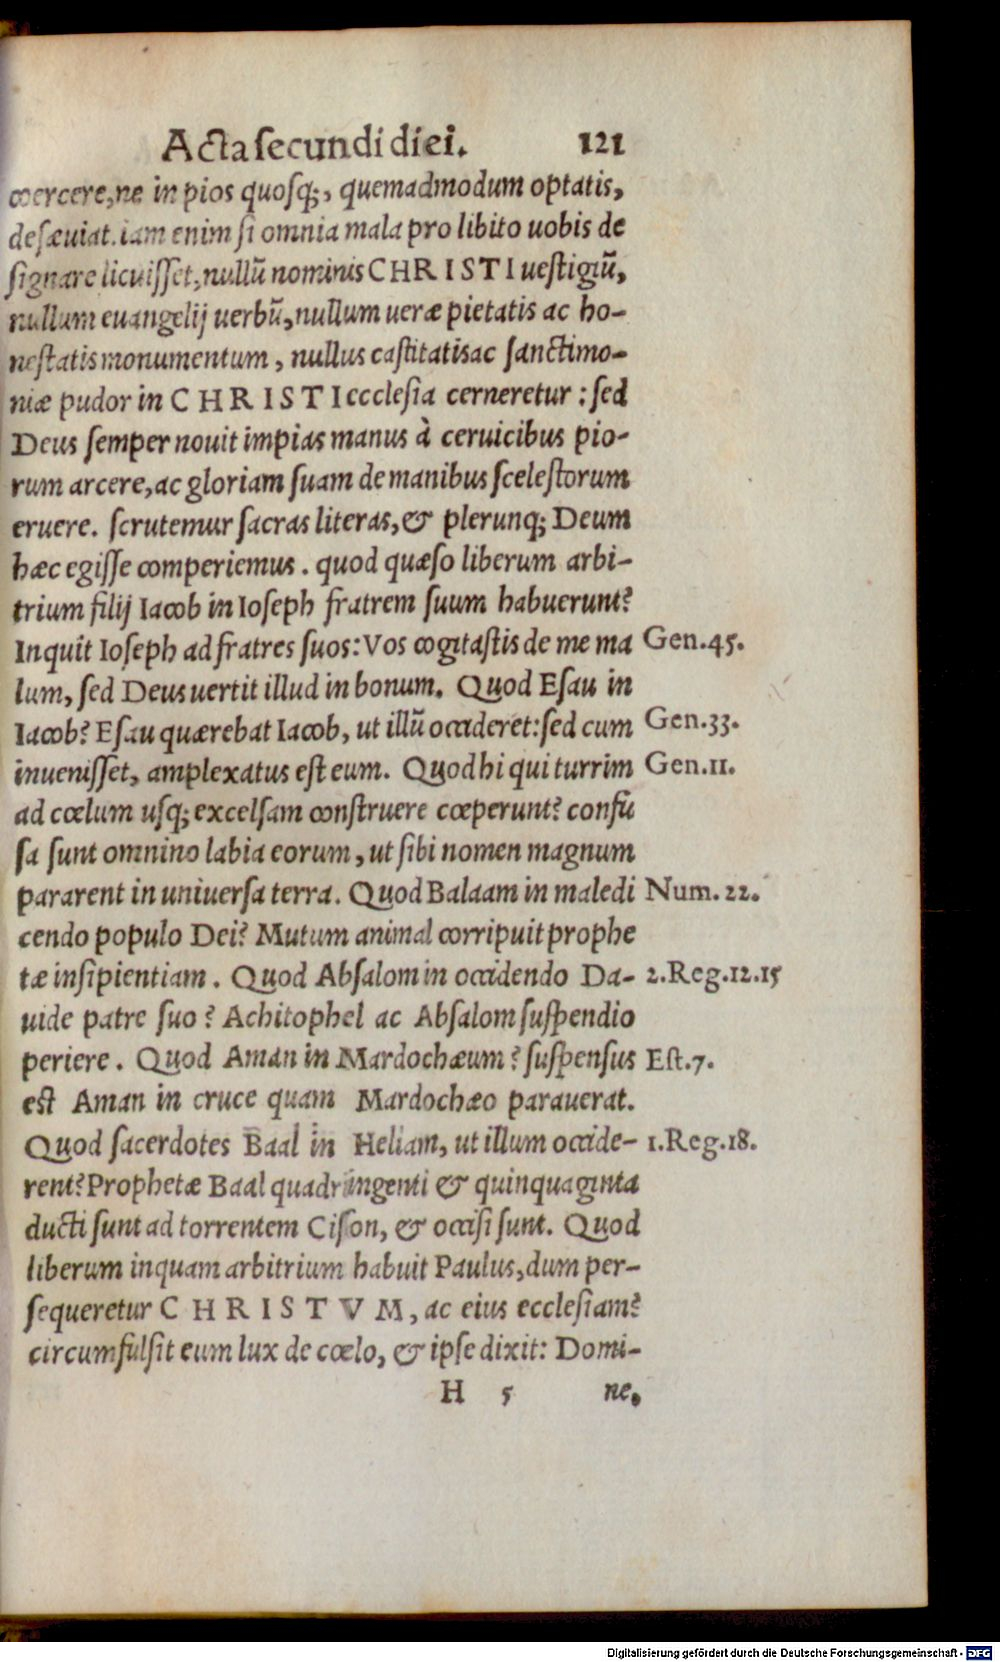 Acta secundi diei. 121
coercere, ne in pios quosq;, quemadmodum optatis,
desæuiat. iam enim si omnia mala pro libito uobis de
signare licuisset, nullũ nominis CHRISTI uestigiũ,
nullum euangelij uerbũ, nullum ueræ pietatis ac ho-
nestatis monumentum, nullus castitatis ac sanctimo-
niæ pudor in CHRISTI ecclesia cerneretur: sed
Deus semper nouit impias manus à ceruicibus pio-
rum arcere, ac gloriam suam de manibus scelestorum
eruere. scrutemur sacras literas, & plerunq; Deum
hæc egisse comperiemus. quod quæso liberum arbi-
trium filij Iacob in Ioseph fratrem suum habuerunt?
Inquit Ioseph ad fratres suos: Vos cogitastis de me ma Gen.45.
lum, sed Deus uertit illud in bonum. Quod Esau in
Iacob? Esau quærebat Iacob, ut illũ occideret: sed cum Gen.33.
inuenisset, amplexatus est eum. Quod hi qui turrim Gen.11.
ad cœlum usq; excelsam construere cœperunt? confũ
sa sunt omnino labia eorum, ut sibi nomen magnum
pararent in uniuersa terra. Quod Balaam in maledi Num.22.
cendo populo Dei? Mutum animal corripuit prophe
tæ insipientiam. Quod Absalom in occidendo Da- 2.Reg.12.15
uide patre suo? Achitophel ac Absalom suspendio
periere. Quod Aman in Mardochæum? suspensus Est.7.
est Aman in cruce quam Mardochæo parauerat.
Quod sacerdotes Baal in Heliam, ut illum occide- 1.Reg.18.
rent? Prophetæ Baal quadringenti & quinquaginta
ducti sunt ad torrentem Cison, & occisi sunt. Quod
liberum inquam arbitrium habuit Paulus, dum per-
sequeretur CHRISTVM, ac eius ecclesiam?
circumfulsit eum lux de cœlo, & ipse dixit: Domi-
H 5 ne,
Digitalisierung gefördert durch die Deutsche Forschungsgemeinschaft - DFG